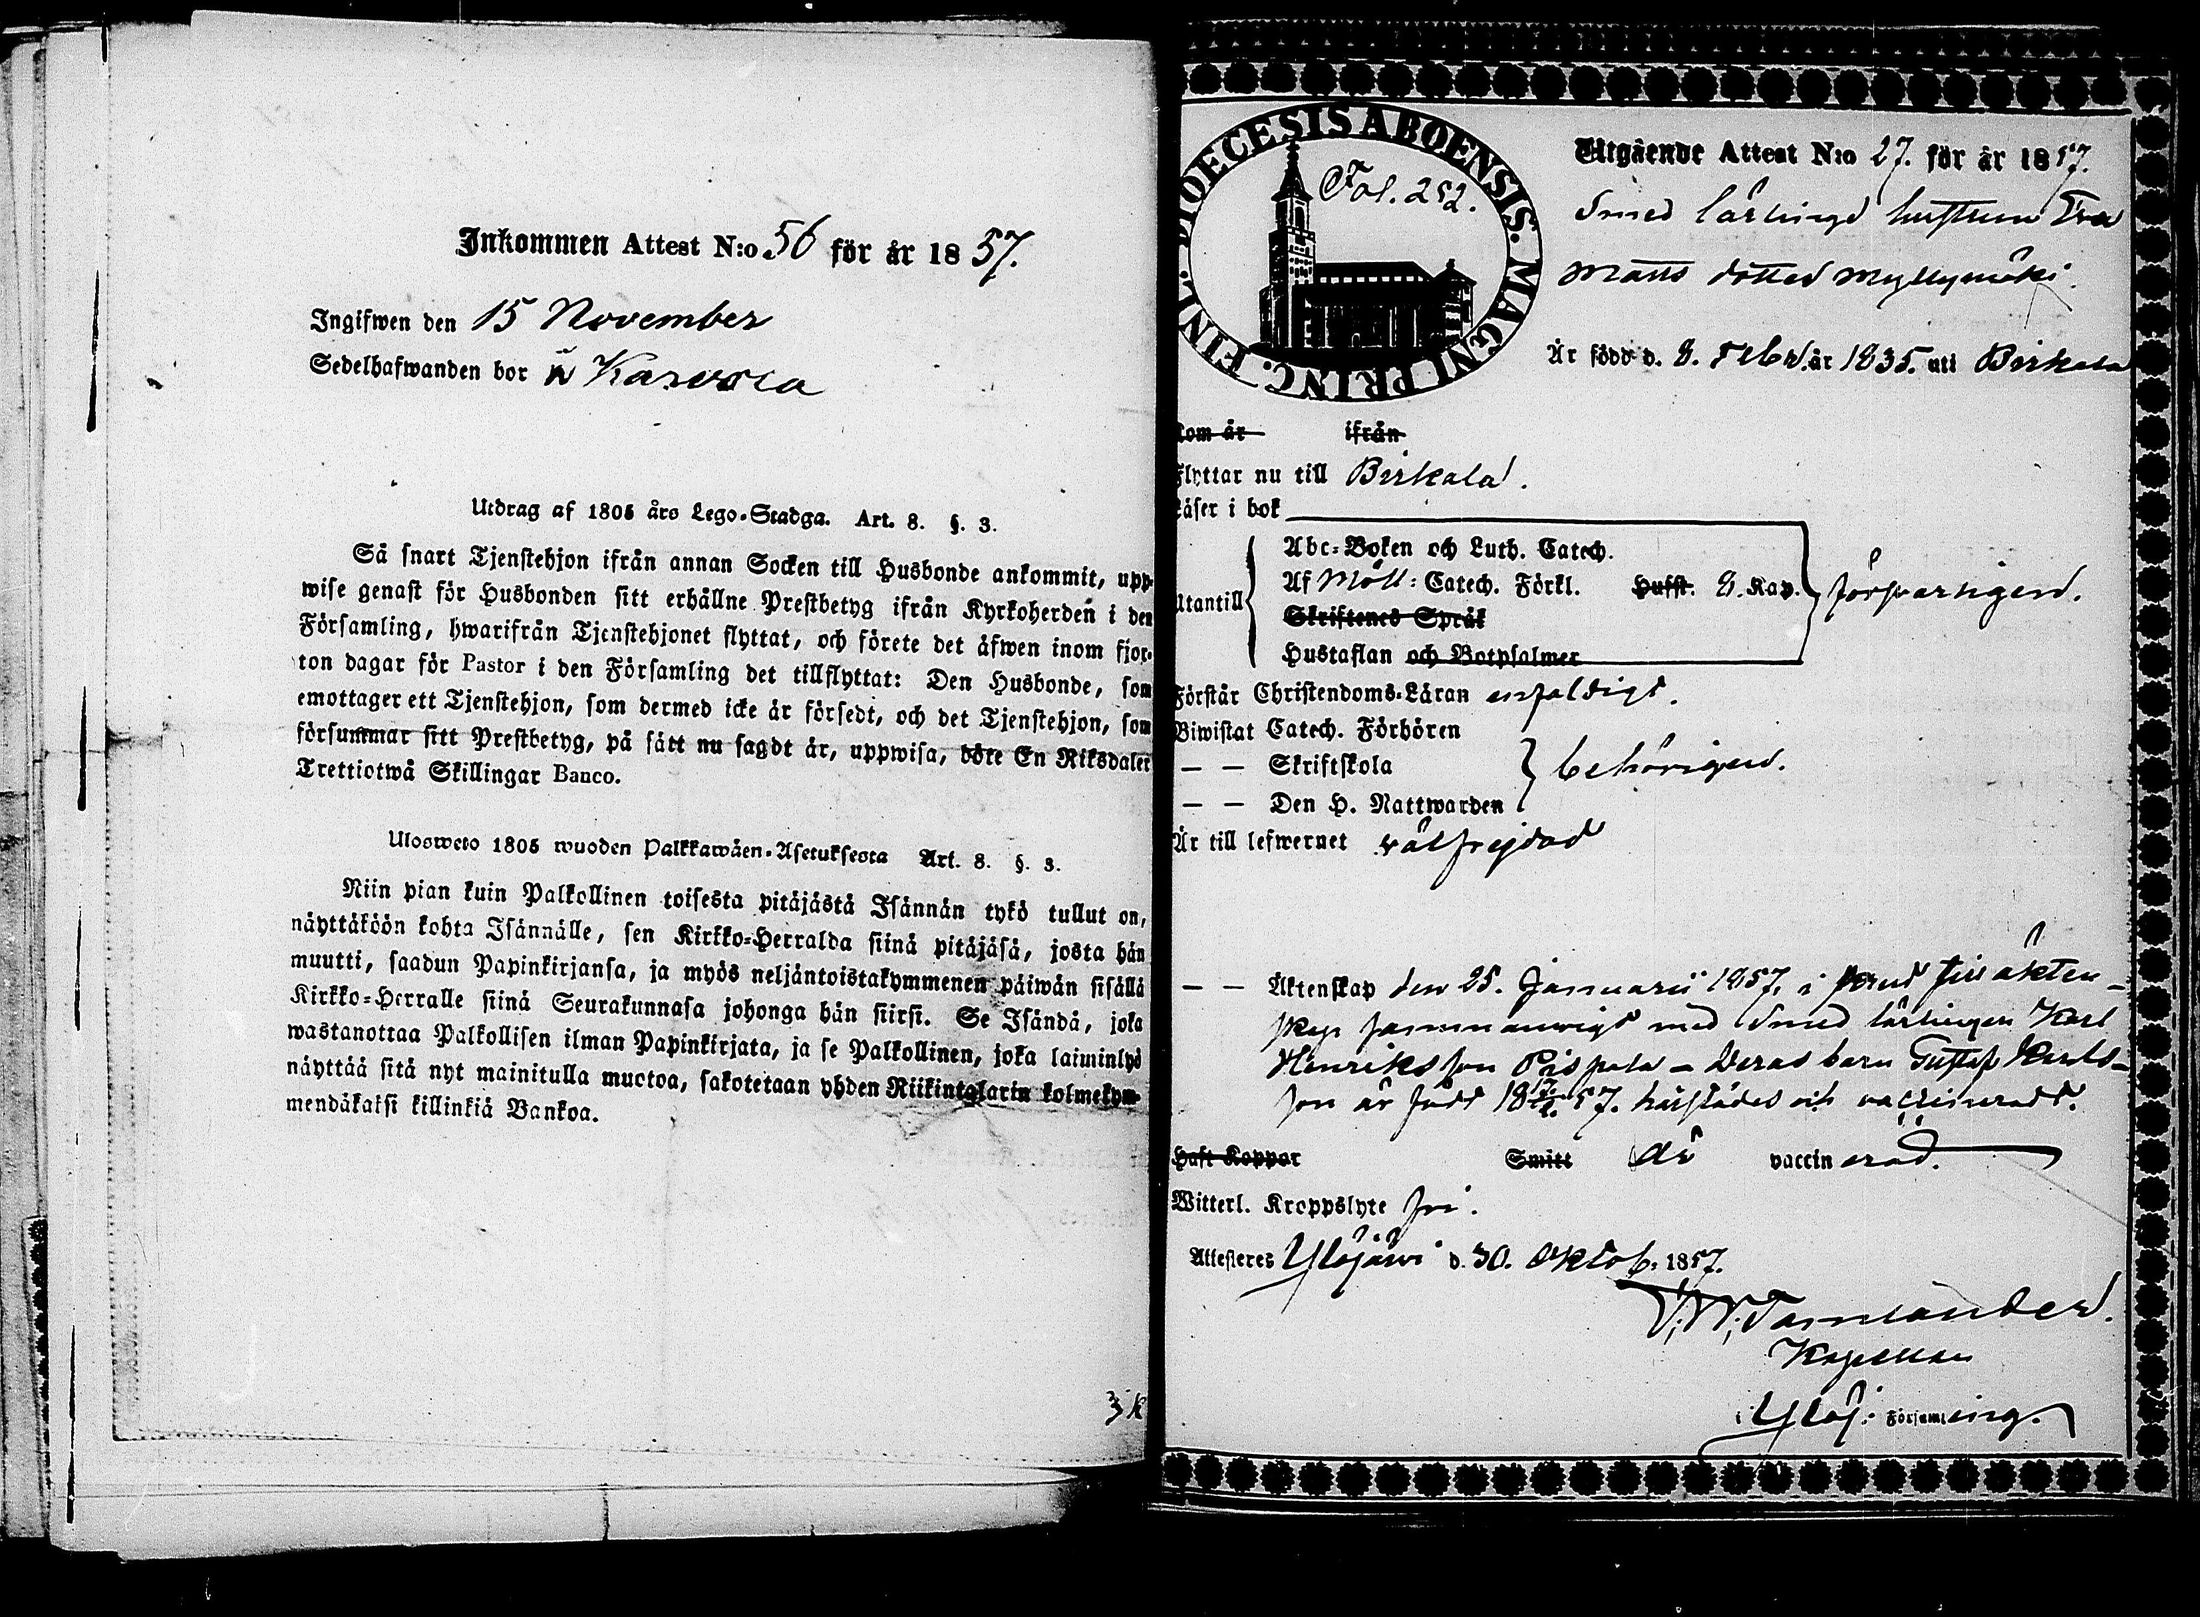 Inkommen Attest N:o 56 för år 1857.
Ingifwen den 15 November
Sedelhafwanden bor i
Utdrag af 1805 års Lego-Stadga. Art. 8. §. 3.
Så snart Tjenstehjon ifrån annan Socken till Husbonde ankommit, upp-
wise genast för Husbonden sitt erhållne Prestbetyg ifrån Kyrkoherden i den
Församling, hwarifrån Tjenstehjonet flyttat, och förete det äfwen inom fjor-
ton dagar för Pastor i den Församling det tillflyttat: Den Husbonde, som
emottager ett Tjenstehjon, som dermed icke är försedt, och det Tjenstehjon, som
försummar sitt Prestbetyg, på sätt nu sagdt är, uppwisa, böte En Riksdaler
Trettiotwå Skillingar Banco.
Ulosweto 1805 wuoden Palkkawäen-Asetuksesta Art. 8. §. 3.
Niin pian kuin Palkollinen toisesta pitäjästä Isännän tykö tullut on,
näyttäköön kohta Isännälle, sen Kirkko-Herralda siinä pitäjäsä, josta hän
muutti, saadun Papinkirjansa, ja myös neljäntoistakymmenen päiwän sisällä
Kirkko-Herralle siinä Seurakunnasa johonga hän siirsi. Se Isändä, joka
wastanottaa Palkollisen ilman Papinkirjata, ja se Palkollinen, joka laiminlyö
näyttää sitä nyt mainitulla muotoa, sakotetaan yhden Riikintalarin kolmekym-
mendäkaksi killinkiä Bankoa.
3 k
DIOECESIS ABOENSIS. MAGNI PRINC. FINL.
Fol. 252.
Utgående Attest N:o 27. för år 1857.
Smed lärlings hustrun Eva
Matts dotter Myllymäki.
Är född d. 8. Febr. år 1835. uti Birkala
Kom år ifrån
Flyttar nu till Birkala.
Läser i bok
Abc-Boken och Luth. Catech.
Af Möll: Catech. Förkl. Hufst. 8. Kap.
Utantill försvarligen.
Skriftenes Språk
Hustaflan och Botpsalmer
Förstår Christendoms-Läran enfaldigt.
Biwistat Catech. Förhören
— — Skriftskola behörigen.
— — Den H. Nattwarden
Är till lefwernet välfrejdad
— — Äktenskap den 25. Januarii 1857. i till äkten-
skap sammanvigd med Smed lärlingen Karl
Henriksson Pispala — Deras barn Gustaf Karls-
son är född 57. härstädes och vaccinerad.
Haft Koppor Smitt är vaccinerad.
Witterl. Kroppslyte fri.
Attesteres Ylöjärvi d. 30. Oktob. 1857.
Kapellan
i Ylöj. Församling.